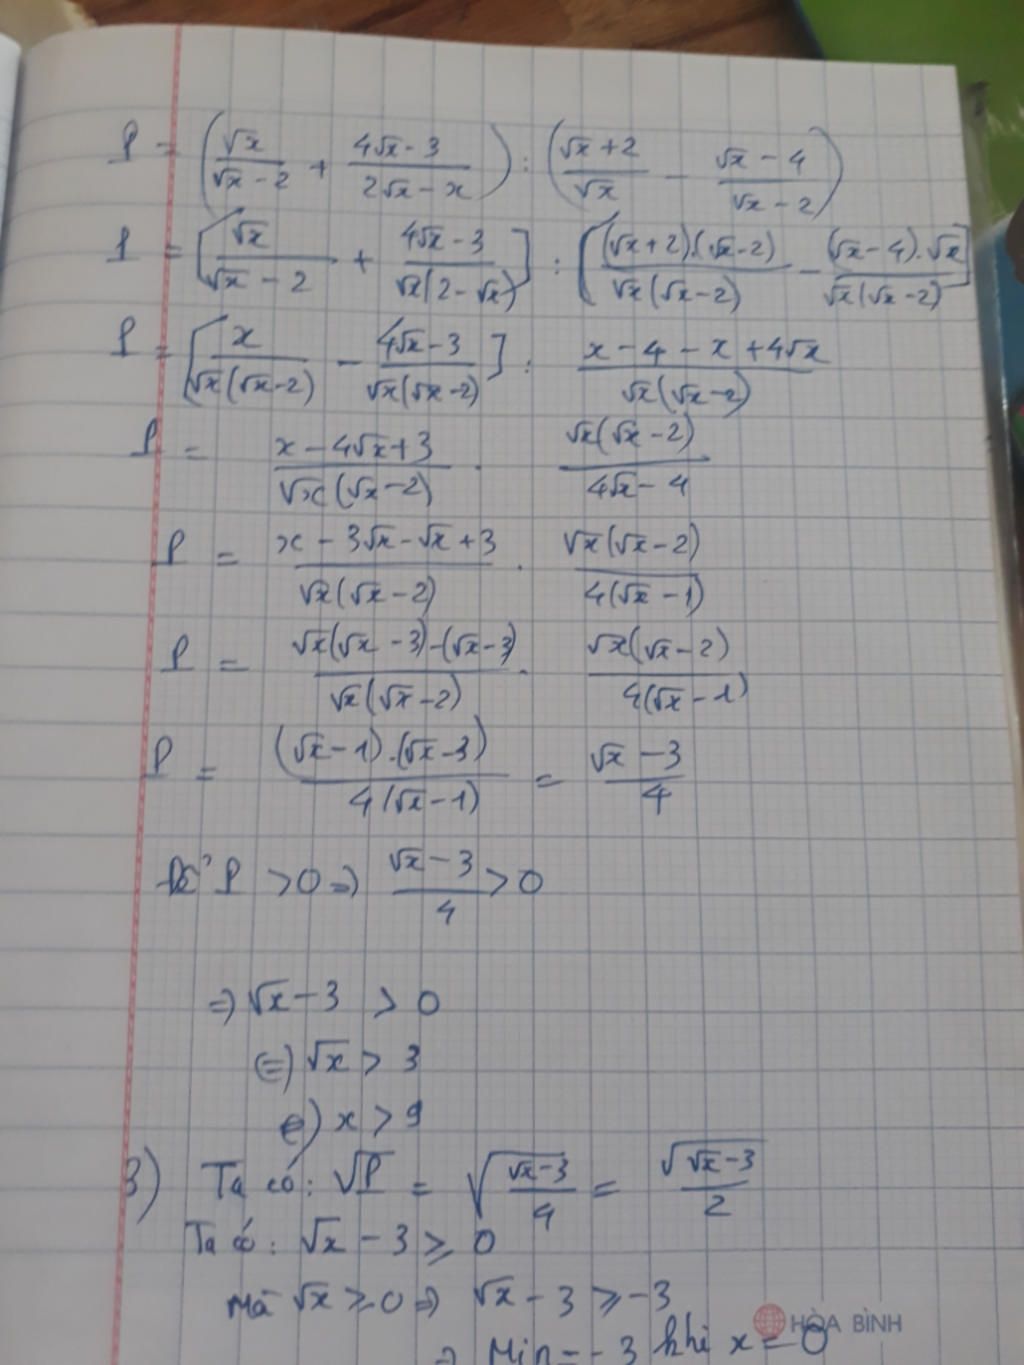 P = (√x/(√x - 2) + (4√x - 3)/(2√x - x)) : ((√x + 2)/√x - (√x - 4)/(√x - 2))
P = [√x/(√x - 2) + (4√x - 3)/(√x(2 - √x))] : [((√x + 2).(√x - 2))/(√x(√x - 2)) - ((√x - 4).√x)/(√x(√x - 2))]
P = [x/(√x(√x - 2)) - (4√x - 3)/(√x(√x - 2))] : (x - 4 - x + 4√x)/(√x(√x - 2))
P = (x - 4√x + 3)/(√x(√x - 2)) . (√x(√x - 2))/(4√x - 4)
P = (x - 3√x - √x + 3)/(√x(√x - 2)) . (√x(√x - 2))/(4(√x - 1))
P = (√x(√x - 3) - (√x - 3))/(√x(√x - 2)) . (√x(√x - 2))/(4(√x - 1))
P = ((√x - 1).(√x - 3))/(4(√x - 1)) = (√x - 3)/4
Để P > 0 => (√x - 3)/4 > 0
=> √x - 3 > 0
(=) √x > 3
(=) x > 9
3) Ta có: √P = √((√x - 3)/4) = √(√x - 3)/2
Ta có: √x - 3 ≥ 0
Mà √x ≥ 0 => √x - 3 ≥ -3
=> Min = -3 khi x = 0
HÒA BÌNH